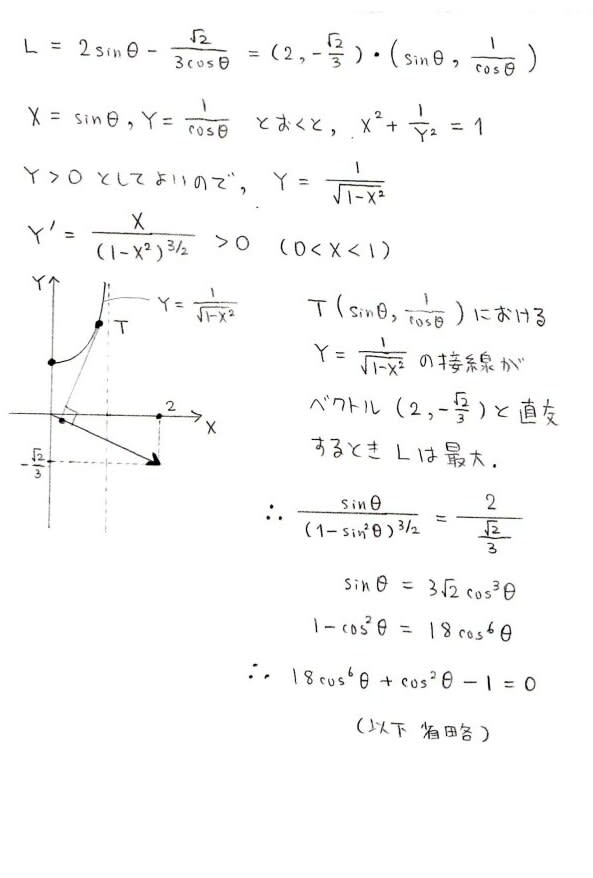 L = 2sinθ - √2/(3cosθ) = (2, -√2/3)・(sinθ, 1/cosθ)
X = sinθ, Y = 1/cosθ とおくと, X² + 1/Y² = 1
Y > 0 としてよいので, Y = 1/√(1-X²)
Y' = X/(1-X²)^(3/2) > 0 (0 < X < 1)
Y
Y = 1/√(1-X²)
T
2
X
-√2/3
T(sinθ, 1/cosθ)における
Y = 1/√(1-X²) の接線が
ベクトル (2, -√2/3) と直交
するとき Lは最大.
∴ sinθ/(1-sin²θ)^(3/2) = 2/(√2/3)
sinθ = 3√2 cos³θ
1-cos²θ = 18cos⁶θ
∴ 18cos⁶θ + cos²θ - 1 = 0
(以下 省略)